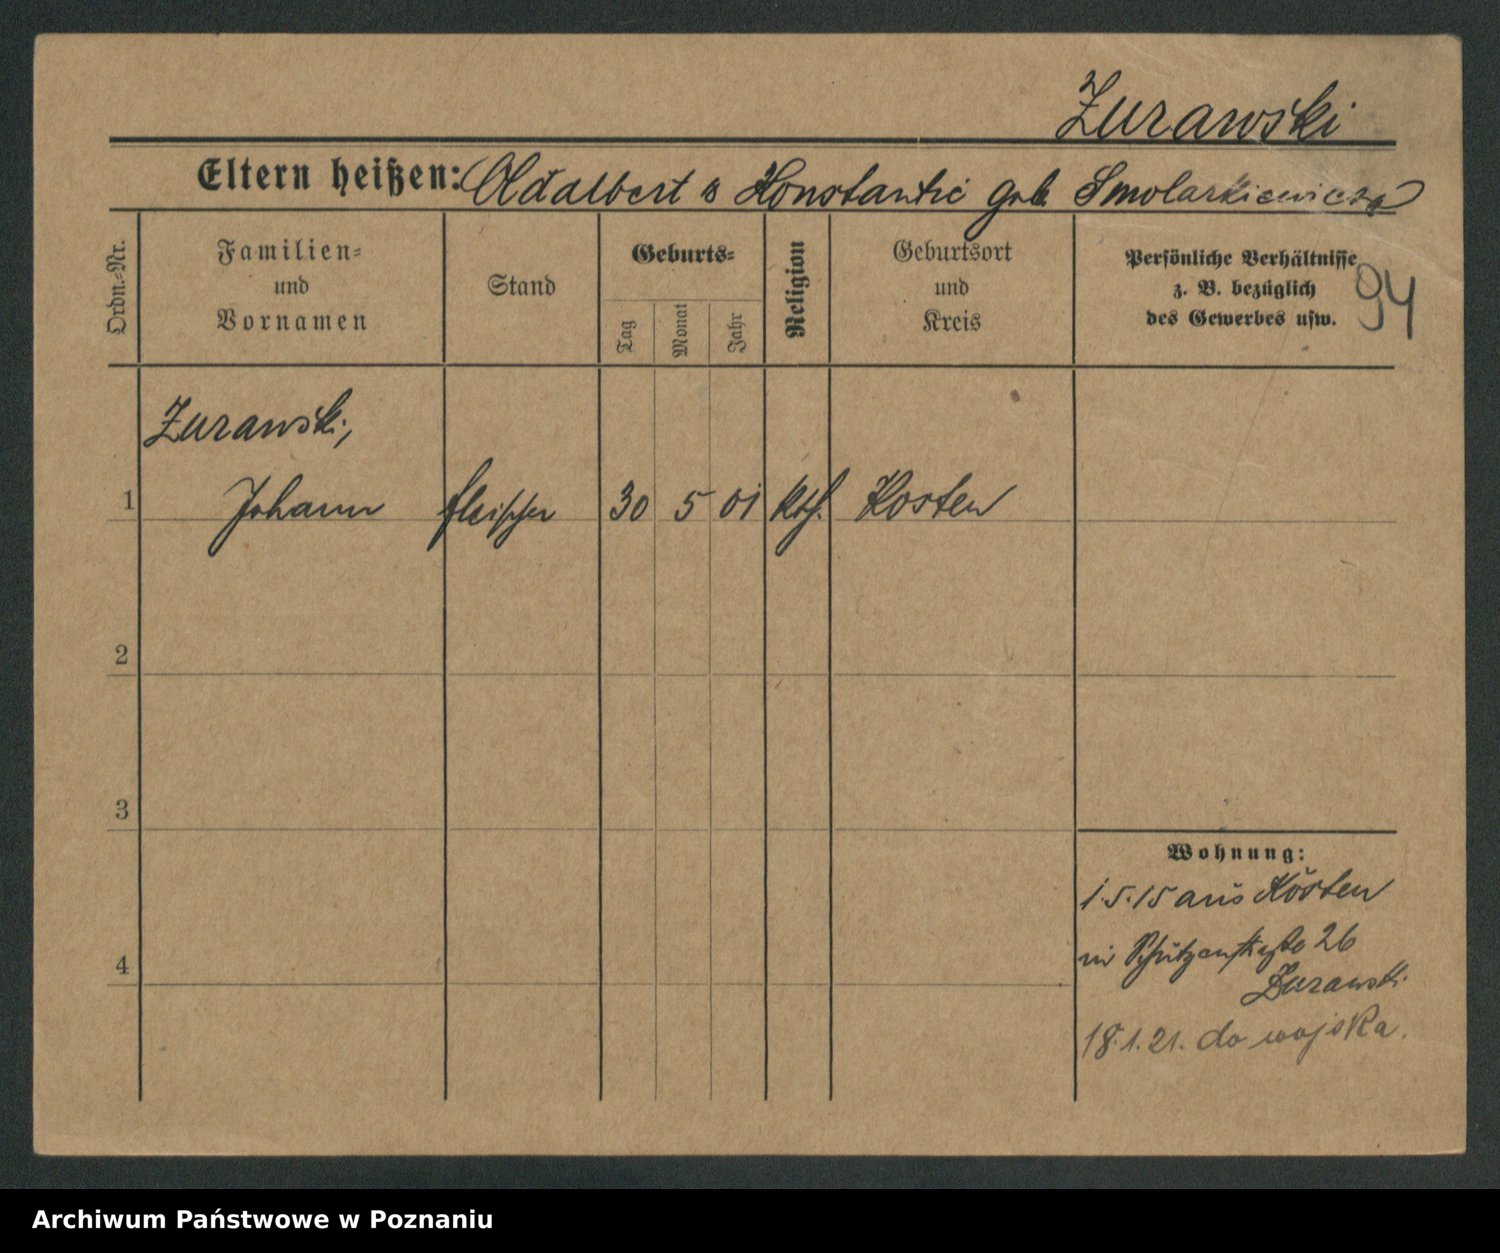 Zurawski
Eltern heißen: Adalbert u Konstantie geb. Smolarkiewicz
Ordn.=Nr.
Familien=
und
Vornamen
Stand
Geburts=
Tag
Monat
Jahr
Religion
Geburtsort
und
Kreis
Persönliche Verhältnisse
z. B. bezüglich
des Gewerbes usw.
94
Zurawski,
1 Johann Fleischer 30 5 01 kth. Kosten
2
3
4
Wohnung:
1.5.15 aus Kosten
26
Zurawski
18.1.21. do wojska.
Archiwum Państwowe w Poznaniu